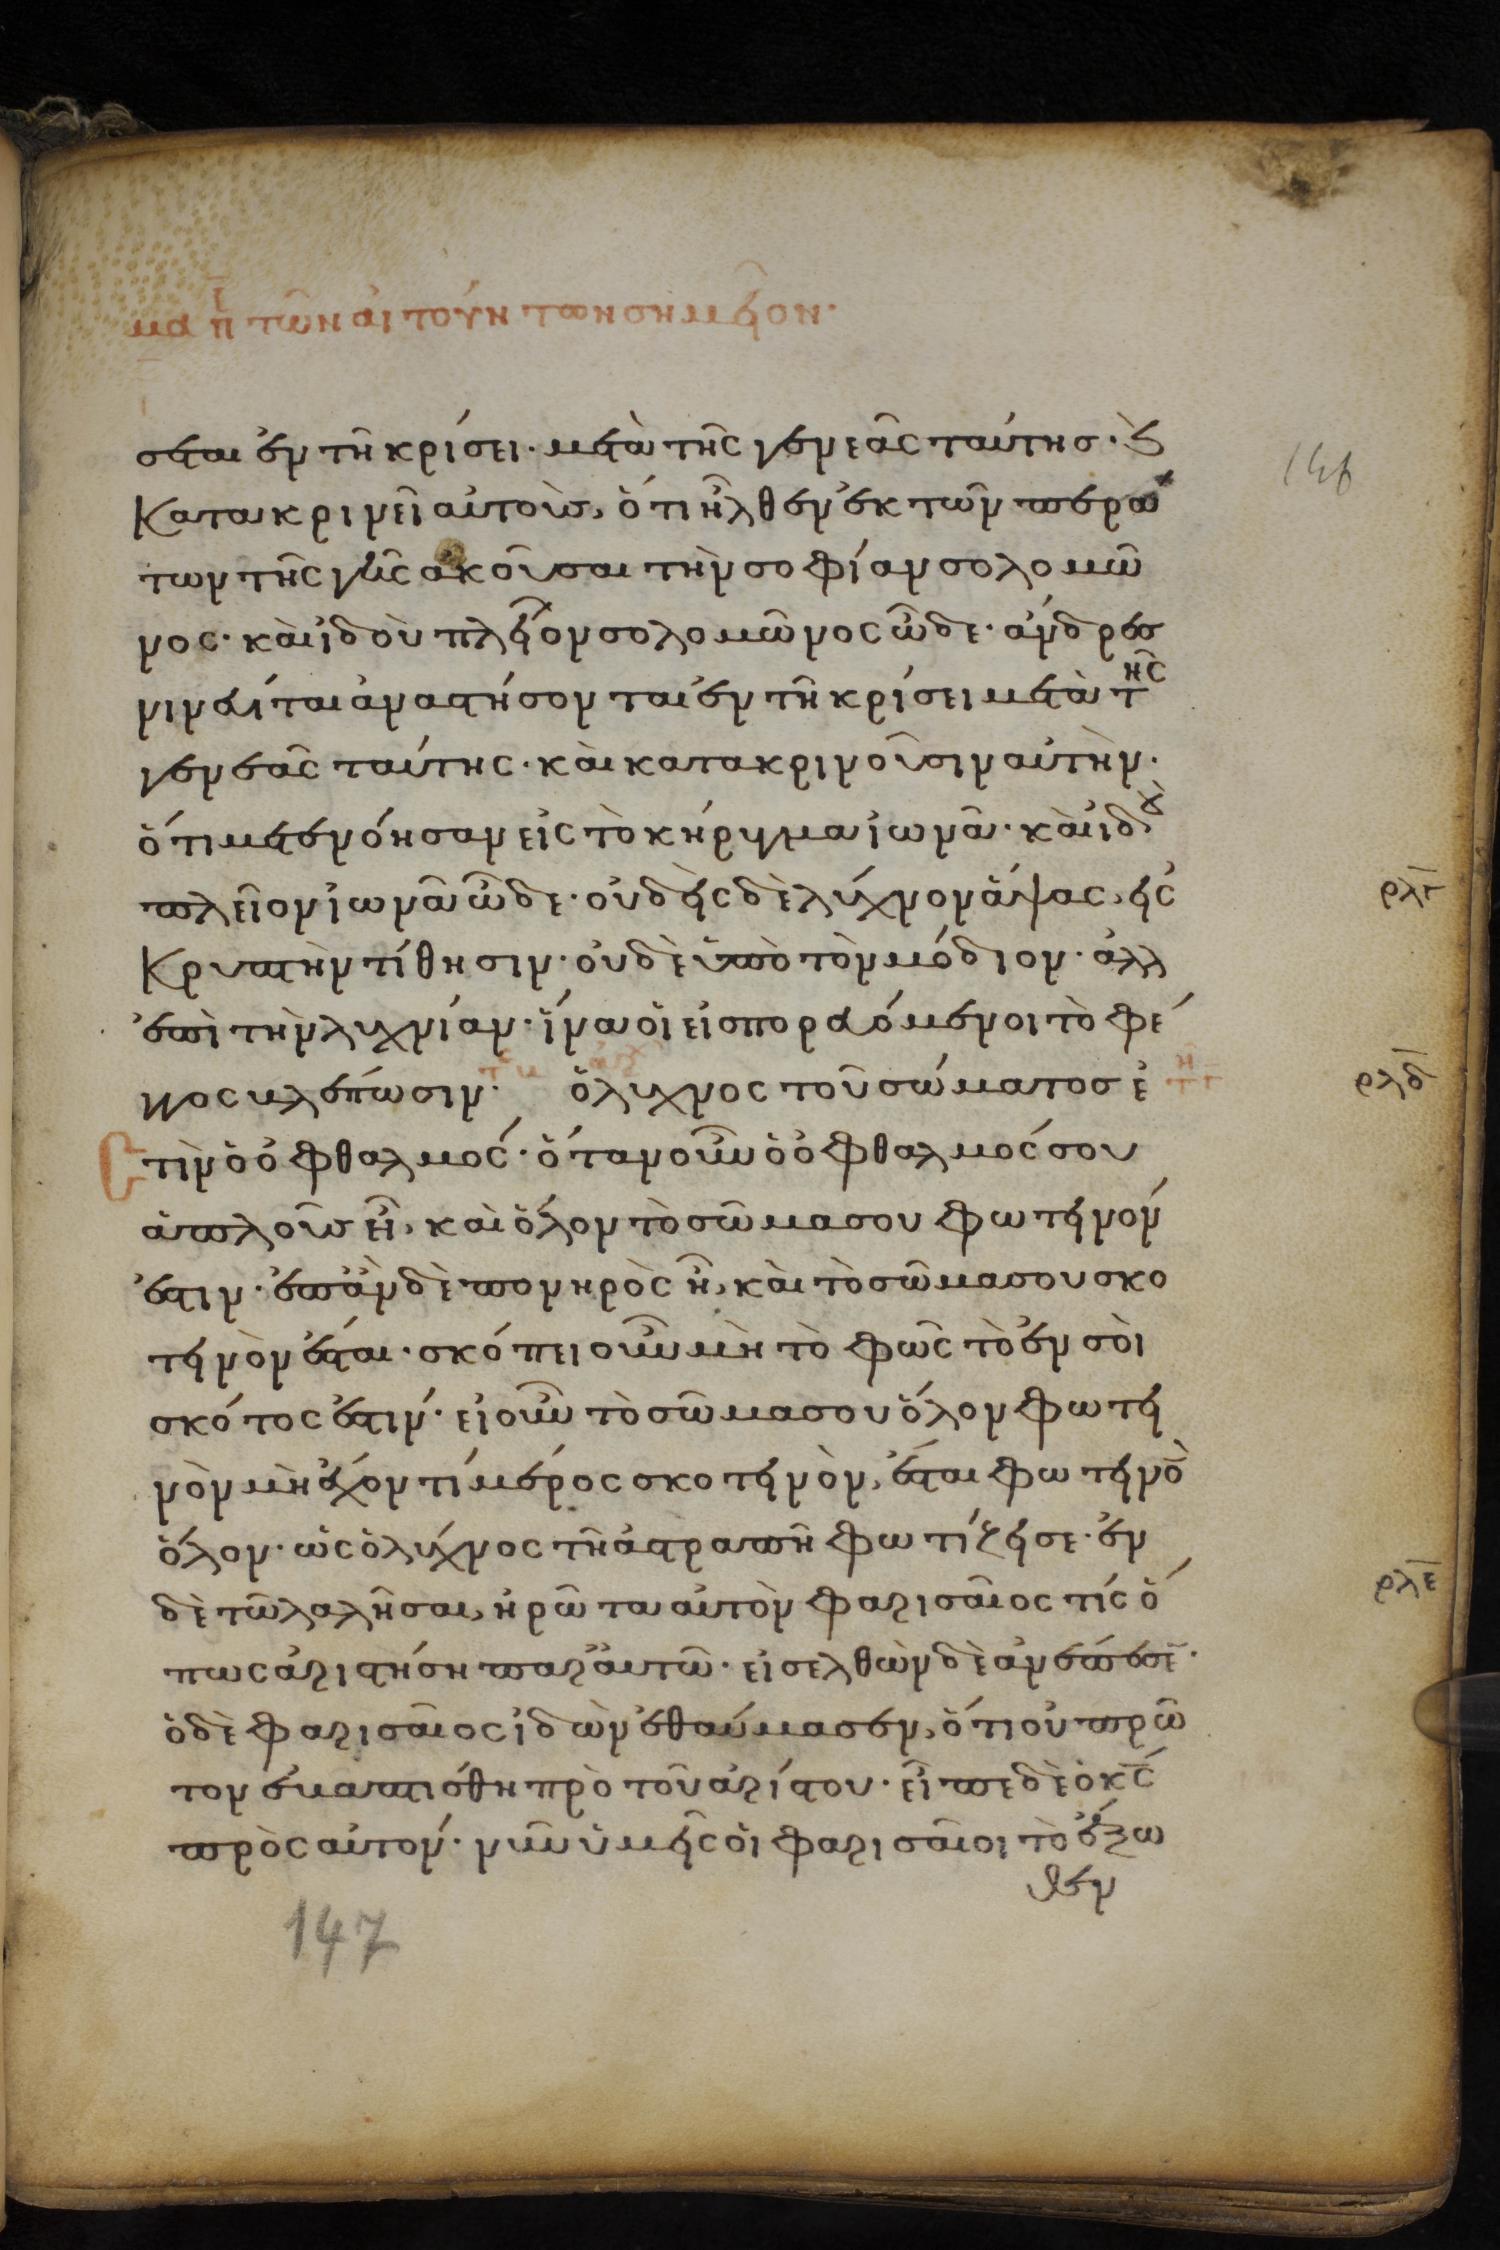 μα π τῶν αἰτούντων σημεῖον·
σεται ἐν τῆ κρίσει· μετὰ τῆς γενεᾶς ταύτησ· ϗ
κατακρινεῖ αὐτοὺσ, ὅτι ἦλθεν ἐκ τῶν περά
των τῆς γῆς ἀκοῦσαι τὴν σοφίαν σολομῶ
νος· καὶ ἰδοὺ πλεῖον σολομῶνος ὧδε· ἄνδρεσ
νινευίται ἀναστήσονται ἐν τῆ κρίσει μετὰ τῆς
γενεᾶς ταύτης· καὶ κατακρινοῦσιν αὐτὴν·
ὅτι μετενόησαν εἰς τὸ κήρυγμα ἰωνᾶ· καὶ ἰδοὺ
πλεῖον ἰωνᾶ ὧδε· οὐδεὶς δὲ λύχνον ἅψας, εἰς
κρυπτὴν τίθησιν· οὐδὲ ὑπὸ τὸν μόδιον· ἀλλ
ἐπὶ τὴν λυχνίαν· ἵνα οἱ εἰσπορευόμενοι τὸ φέγ
γος βλέπωσιν· ὁ λύχνος τοῦ σώματοσ ἐ
στὶν ὁ ὀφθαλμός· ὅταν οὖν ὁ ὀφθαλμός σου
ἁπλοῦσ ἦ, καὶ ὅλον τὸ σῶμα σου φωτεινόν
ἐστιν· ἐπἂν δὲ πονηρὸς ἦ, καὶ τὸ σῶμα σου σκο
τεινὸν ἔσται· σκόπει οὖν μὴ τὸ φῶς τὸ ἐν σοὶ
σκότος ἐστίν· εἰ οὖν τὸ σῶμα σου ὅλον φωτει
νὸν μὴ ἔχον τί μέρος σκοτεινὸν, ἔσται φωτεινὸ
ὅλον· ὡς ὁ λύχνος τῆ ἀστραπῆ φωτίζει σε· ἐν
δὲ τῶ λαλῆσαι, ἠρώτα αὐτὸν φαρισαῖος τίς ὅ
πως ἀριστήση παρ' αὐτῶ· εἰσελθὼν δὲ ἀνέπεσε·
ὁ δὲ φαρισαῖος ἰδὼν ἐθαύμασεν, ὅτι οὐ πρῶ
τον ἐβαπτίσθη πρὸ τοῦ ἀρίστου· εἶπε δὲ ὁ κς
πρὸς αὐτον· νῦν ὑμεῖς οἱ φαρισαῖοι τὸ ἔξω
θεν
ρλγ
ρλδ
ρλε
147